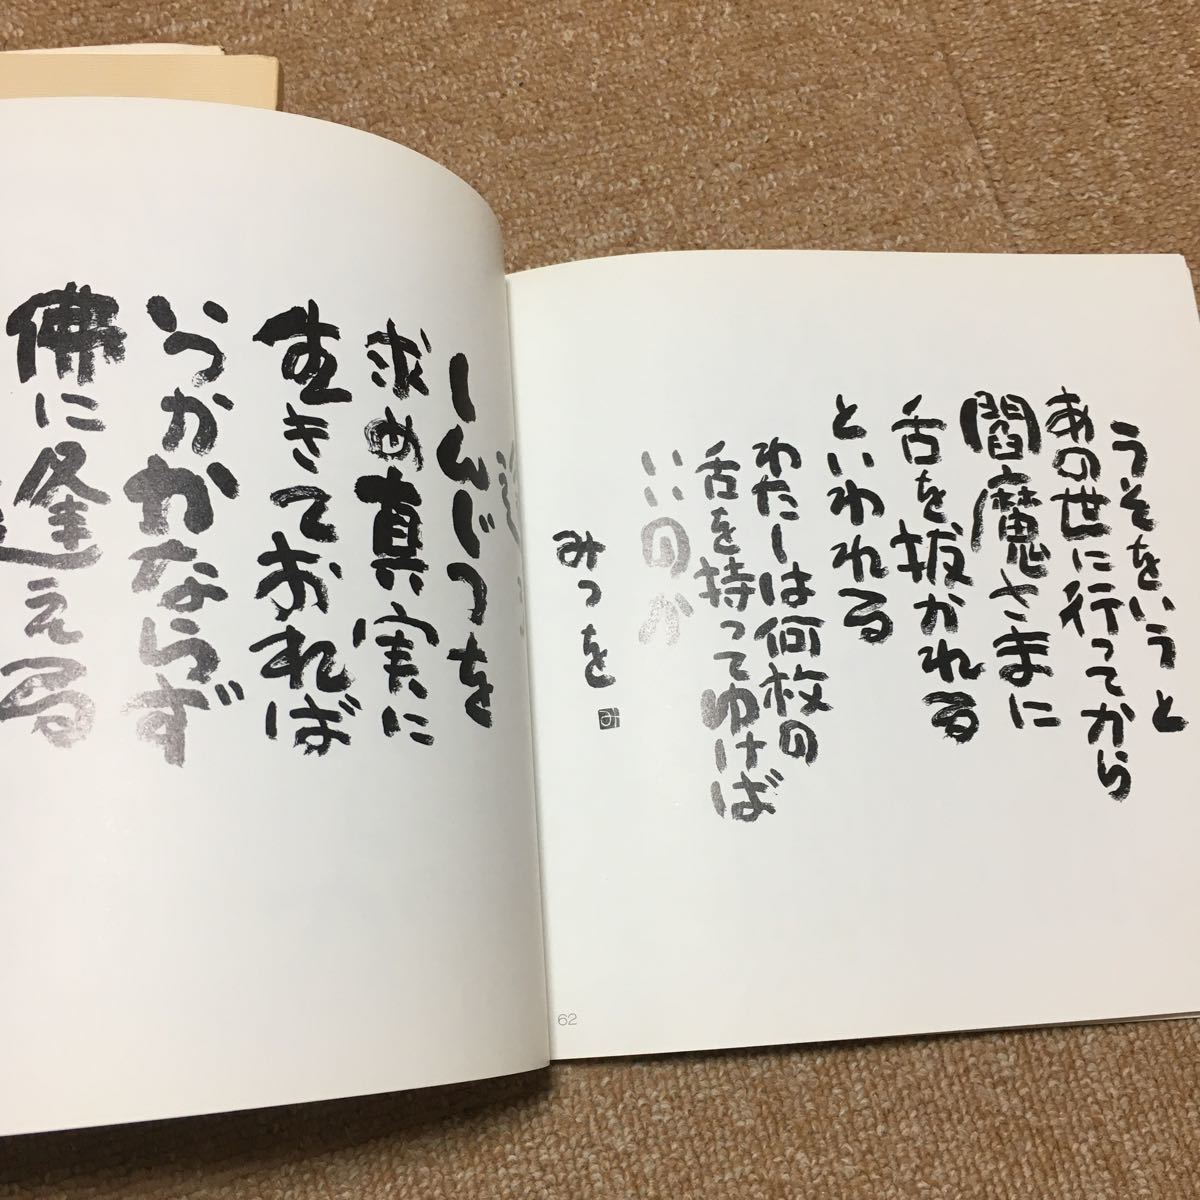 うそをいうと
あの世に行ってから
閻魔さまに
舌を抜かれる
といわれる
わたしは何枚の
舌を持ってゆけば
いいのか
みつを
み
62
しんじつを
求め真実に
生きておれば
いつかかならず
佛に逢える